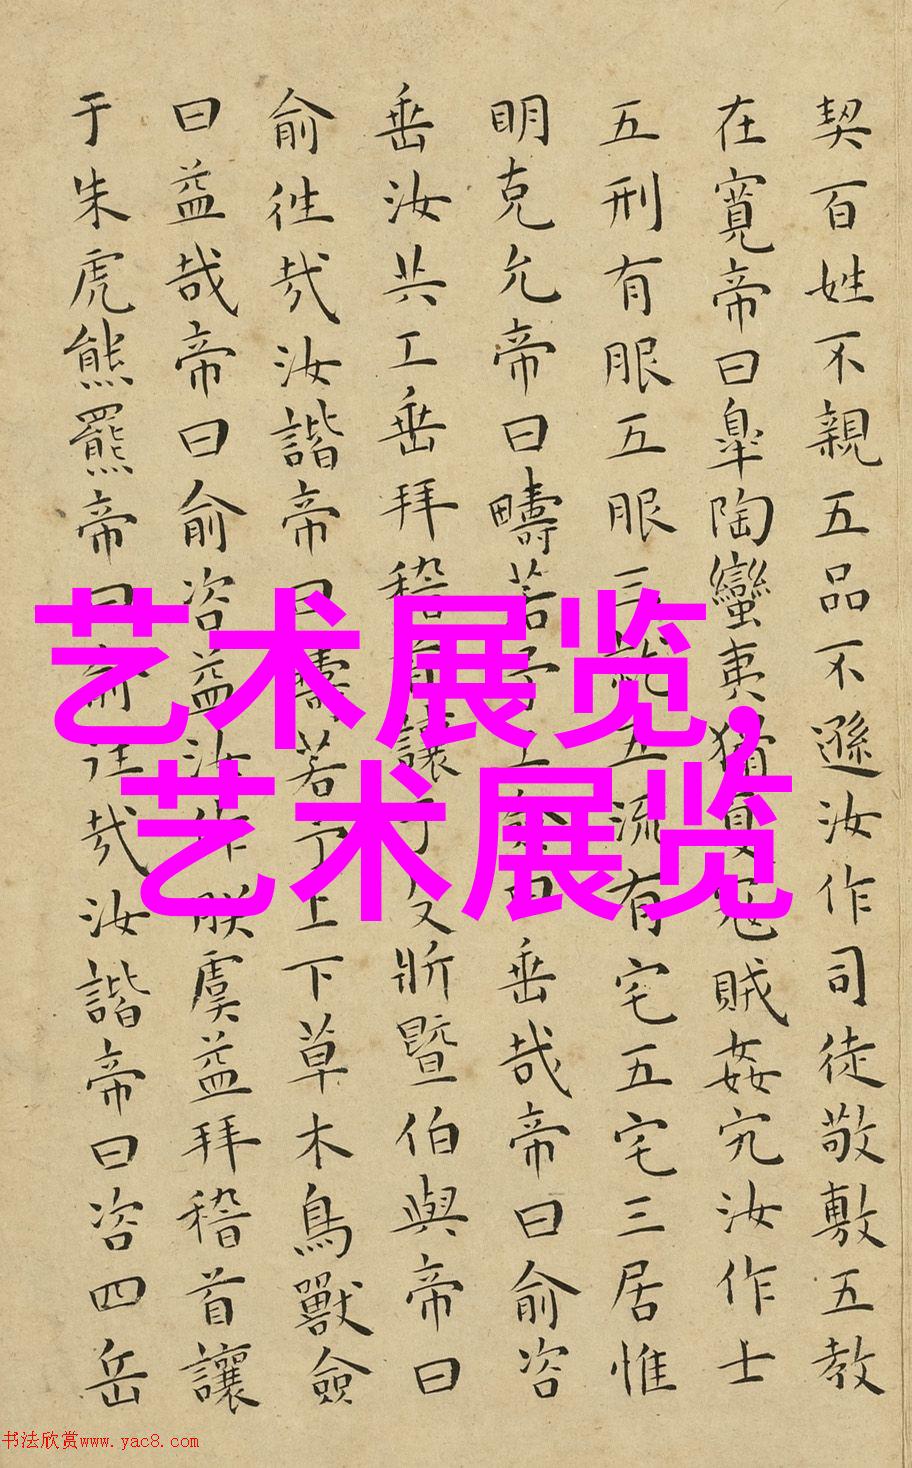 契百姓不親五品不遜汝作司徒敬敷五教
在寬帝曰臯陶蠻夷猾夏寇賊姦宄汝作士
五刑有服五服三就五流有宅五宅三居惟
明克允帝曰疇若予工曰垂哉帝曰俞咨
垂汝共工垂拜稽首讓于殳斨暨伯與帝曰
俞往哉汝諧帝曰疇若予上下草木鳥獸僉
曰益哉帝曰俞咨益汝作朕虞益拜稽首讓
于朱虎熊羆帝曰俞往哉汝諧帝曰咨四岳
艺术展览,
艺术展览
书法欣赏www.yac8.com